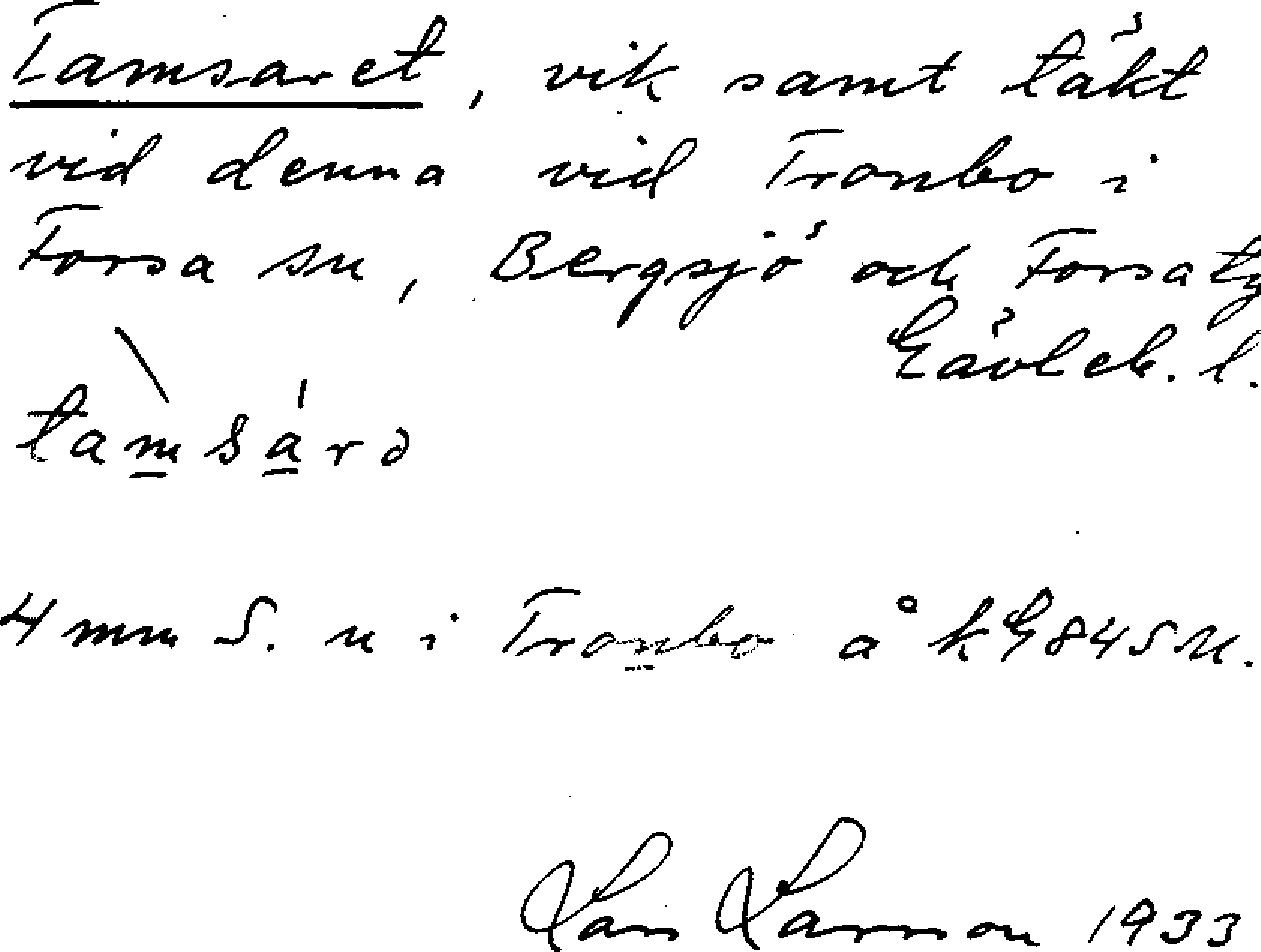 Tamsaret, vik samt täkt
vid denna vid Tronbo i
Forsa sn, Bergsjö och Forsa tg
Gävleb. l.
tamsárə
4 mm S. n i Tronbo å kG845M.
Lars Larsson 1933